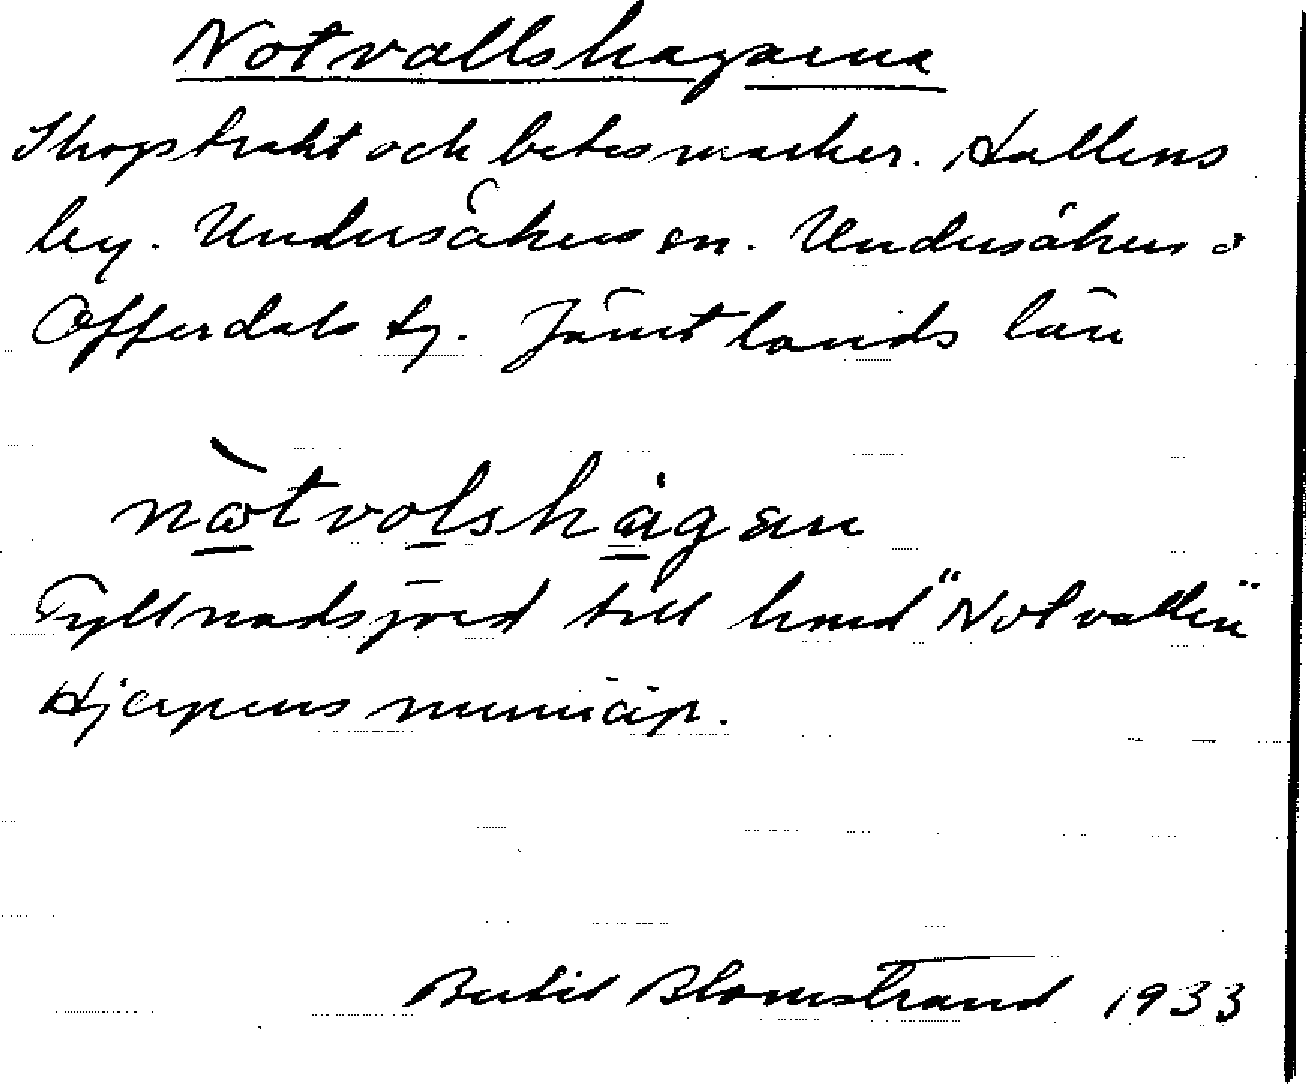 Notvallshagarna
Skogstrakt och betesmarker. Hallens
by. Undersåkers sn. Undersåkers o
Offerdals tg. Jämtlands län
nòtvolshagan
Fyllnadsjord till hmd "Notvallen"
Hjerpens municip.
Bertil Blomstrand 1933